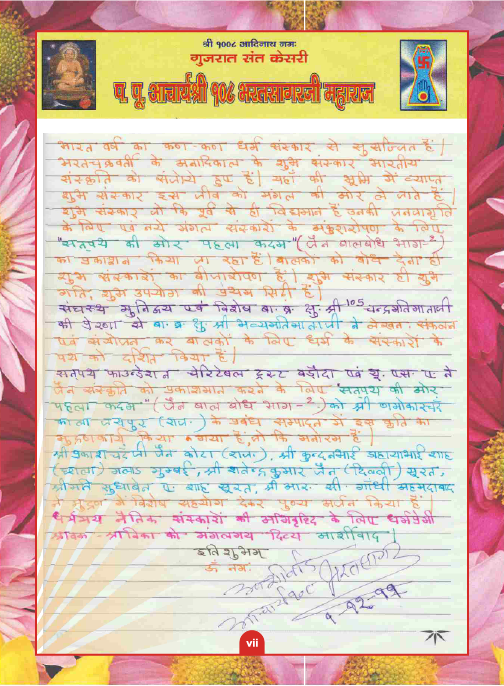 श्री १००८ आदिनाथ नमः
गुजरात संत केसरी
प. पू. आचार्यश्री १०८ भरतसागरजी महाराज
भारत वर्ष का कण-कण धर्म संस्कार से सुसज्जित है।
भरतचक्रवर्ती के अनादिकाल के शुभ संस्कार भारतीय
संस्कृति को संजोये हुए हैं। यहां की भूमि में व्याप्त
शुभ संस्कार इस जीव को मंगल की ओर ले जाते हैं।
शुभ संस्कार जो कि पूर्व से ही विद्यमान हैं उनकी जनजागृति
के लिए एवं नये मंगल संस्कारों के अंकुरारोपण के लिए
"सतपथ की ओर पहला कदम" (जैन बालबोध भाग-2)
का प्रकाशन किया जा रहा है। बालकों को बोध देना ही
शुभ संस्कारों का बीजारोपण है। शुभ संस्कार ही शुभ
गति, शुभ उपयोग की प्रथम सिढ़ी है।
संघस्थ मुनिद्वय एवं विशेष बा. ब्र. क्षु. श्री 105 चन्द्रमतिमाताजी
की प्रेरणा से बा. ब्र. क्षु श्री भव्यमतिमाताजी ने लेखन, संकलन
एवं संयोजन कर बालकों के लिए धर्म के संस्कारों के
पथ को दर्शित किया है।
सतपथ फाउन्डेशन चेरिटेबल ट्रस्ट बड़ौदा एवं यु. एस. ए. ने
जैन संस्कृति को प्रकाशमान करने के लिए "सतपथ की ओर
पहला कदम" (जैन बाल बोध भाग-2) को श्री णमोकारचंद
काला जयपुर (राज.) के प्रबंध सम्पादन में इस कृति का
मुद्रणकार्य किया गया है, जो कि मनोरम है।
श्री प्रकाशचंद जी जैन कोटा (राज.), श्री कुन्दनभाई शाह
मलाड मुम्बई, श्री शैलेन्द्र कुमार जैन (दिल्ली) सूरत,
श्रीमति सुधाबेन ए. शाह सूरत, श्री आर. सी. गांधी अहमदाबाद
ने मुद्रण में विशेष सहयोग देकर पुण्य अर्जन किया है।
नैतिक संस्कारों की अभिवृद्धि के लिए धर्मप्रेमी
श्रावक-श्राविका को मंगलमय दिव्य आशीर्वाद।
इति शुभम्
ॐ नमः
आचार्य १०८ भरतसागर
१-१२-११
vii